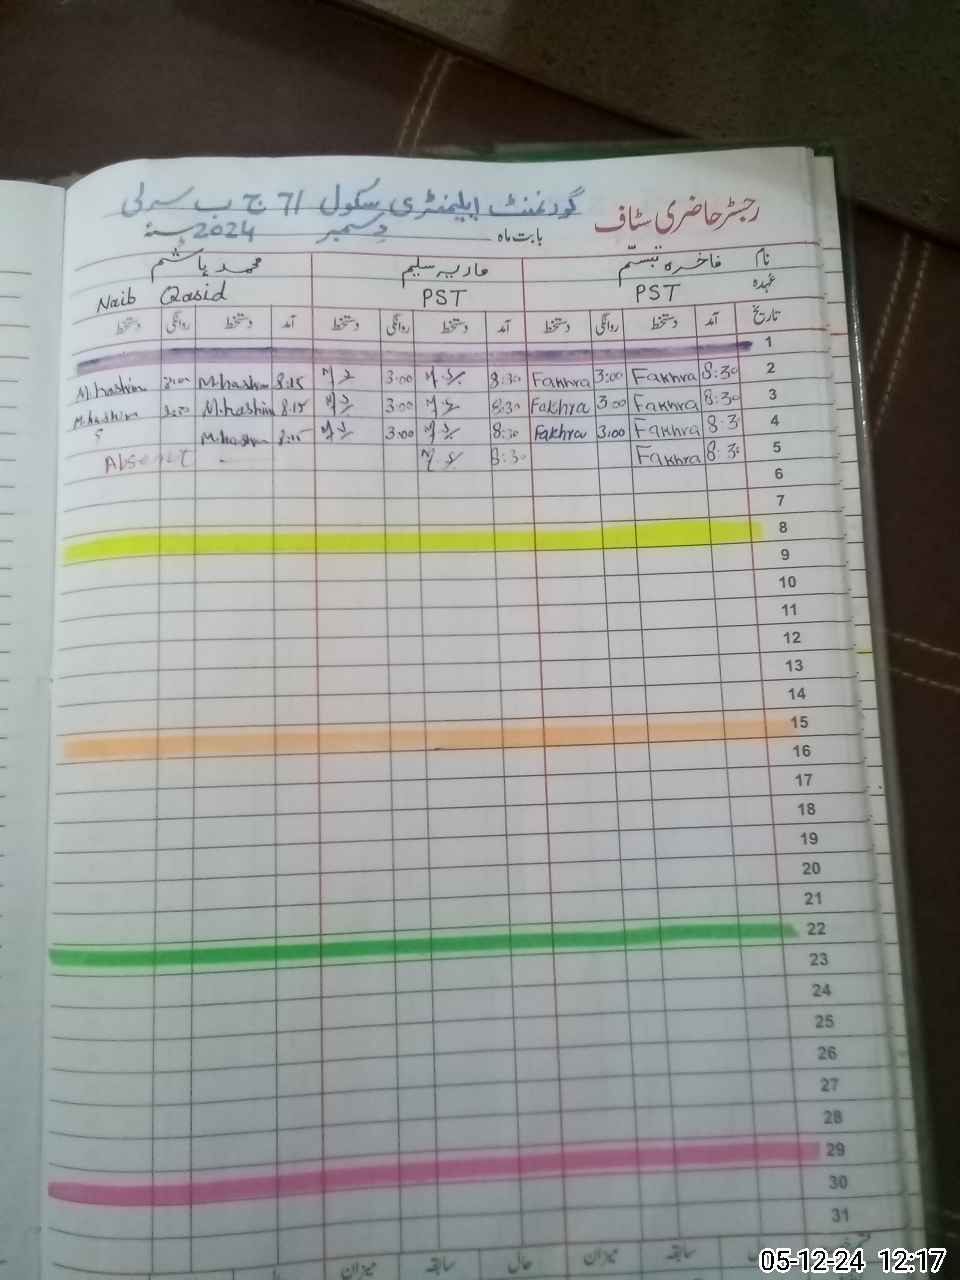 رجسٹر حاضری سٹاف گورنمنٹ ایلیمنٹری سکول 71 ج ب سرلی
بابت ماہ دسمبر 2024
نام فاخرہ تبسّم ماریہ سلیم محمد ہاشم
عہدہ PST PST Naib Qasid
تاریخ آمد دستخط روانگی دستخط آمد دستخط روانگی دستخط آمد دستخط روانگی دستخط
1
2 8:30 Fakhra 3:00 Fakhra 8:30 3:00 8:15 M.hashim 3:00 M.hashim
3 8:30 Fakhra 3:00 Fakhra 8:30 3:00 8:15 M.hashim 3:00 M.hashim
4 8:3 Fakhra 3:00 Fakhra 8:30 3:00 8:15 M.hashim
5 8:3 Fakhra 8:30 Absent
6
7
8
9
10
11
12
13
14
15
16
17
18
19
20
21
22
23
24
25
26
27
28
29
30
31
سابقہ میزان حال سابقہ میزان
05-12-24 12:17